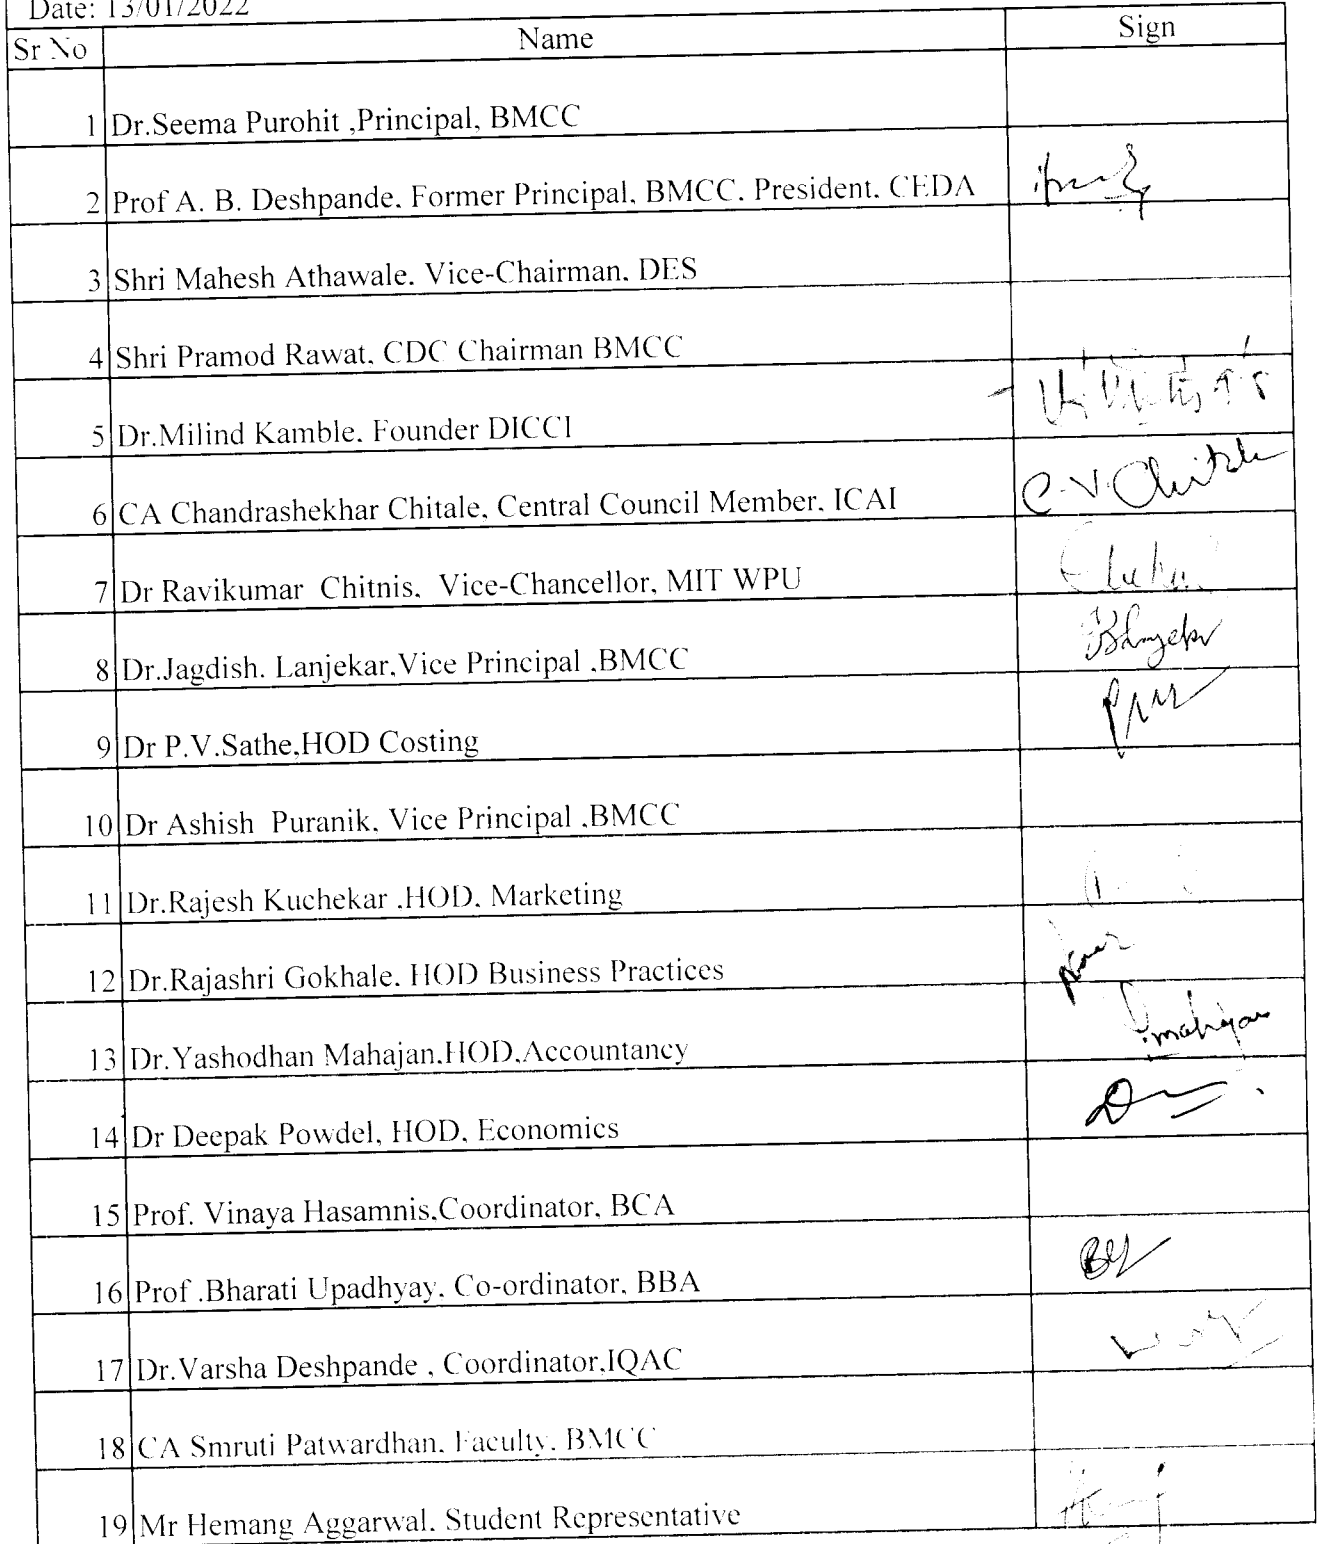 Date: 13/01/2022
Sr No Name Sign
1 Dr.Seema Purohit ,Principal, BMCC
2 Prof A. B. Deshpande. Former Principal. BMCC. President. CEDA
3 Shri Mahesh Athawale. Vice-Chairman. DES
4 Shri Pramod Rawat. CDC Chairman BMCC
5 Dr.Milind Kamble. Founder DICCI
6 CA Chandrashekhar Chitale, Central Council Member. ICAI C.V. Chitale
7 Dr Ravikumar Chitnis. Vice-Chancellor, MIT WPU
8 Dr.Jagdish. Lanjekar,Vice Principal .BMCC
9 Dr P.V.Sathe,HOD Costing
10 Dr Ashish Puranik. Vice Principal .BMCC
11 Dr.Rajesh Kuchekar .HOD. Marketing
12 Dr.Rajashri Gokhale. HOD Business Practices
13 Dr.Yashodhan Mahajan.HOD.Accountancy
14 Dr Deepak Powdel, HOD. Economics
15 Prof. Vinaya Hasamnis.Coordinator, BCA
16 Prof .Bharati Upadhyay. Co-ordinator, BBA
17 Dr.Varsha Deshpande , Coordinator,IQAC
18 CA Smruti Patwardhan. Faculty. BMCC
19 Mr Hemang Aggarwal. Student Representative